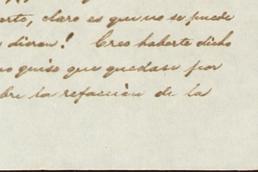 erto, claro es que no se puede
dieron! Creo haberte dicho
no quiso que quedase por
bre la refacción de la